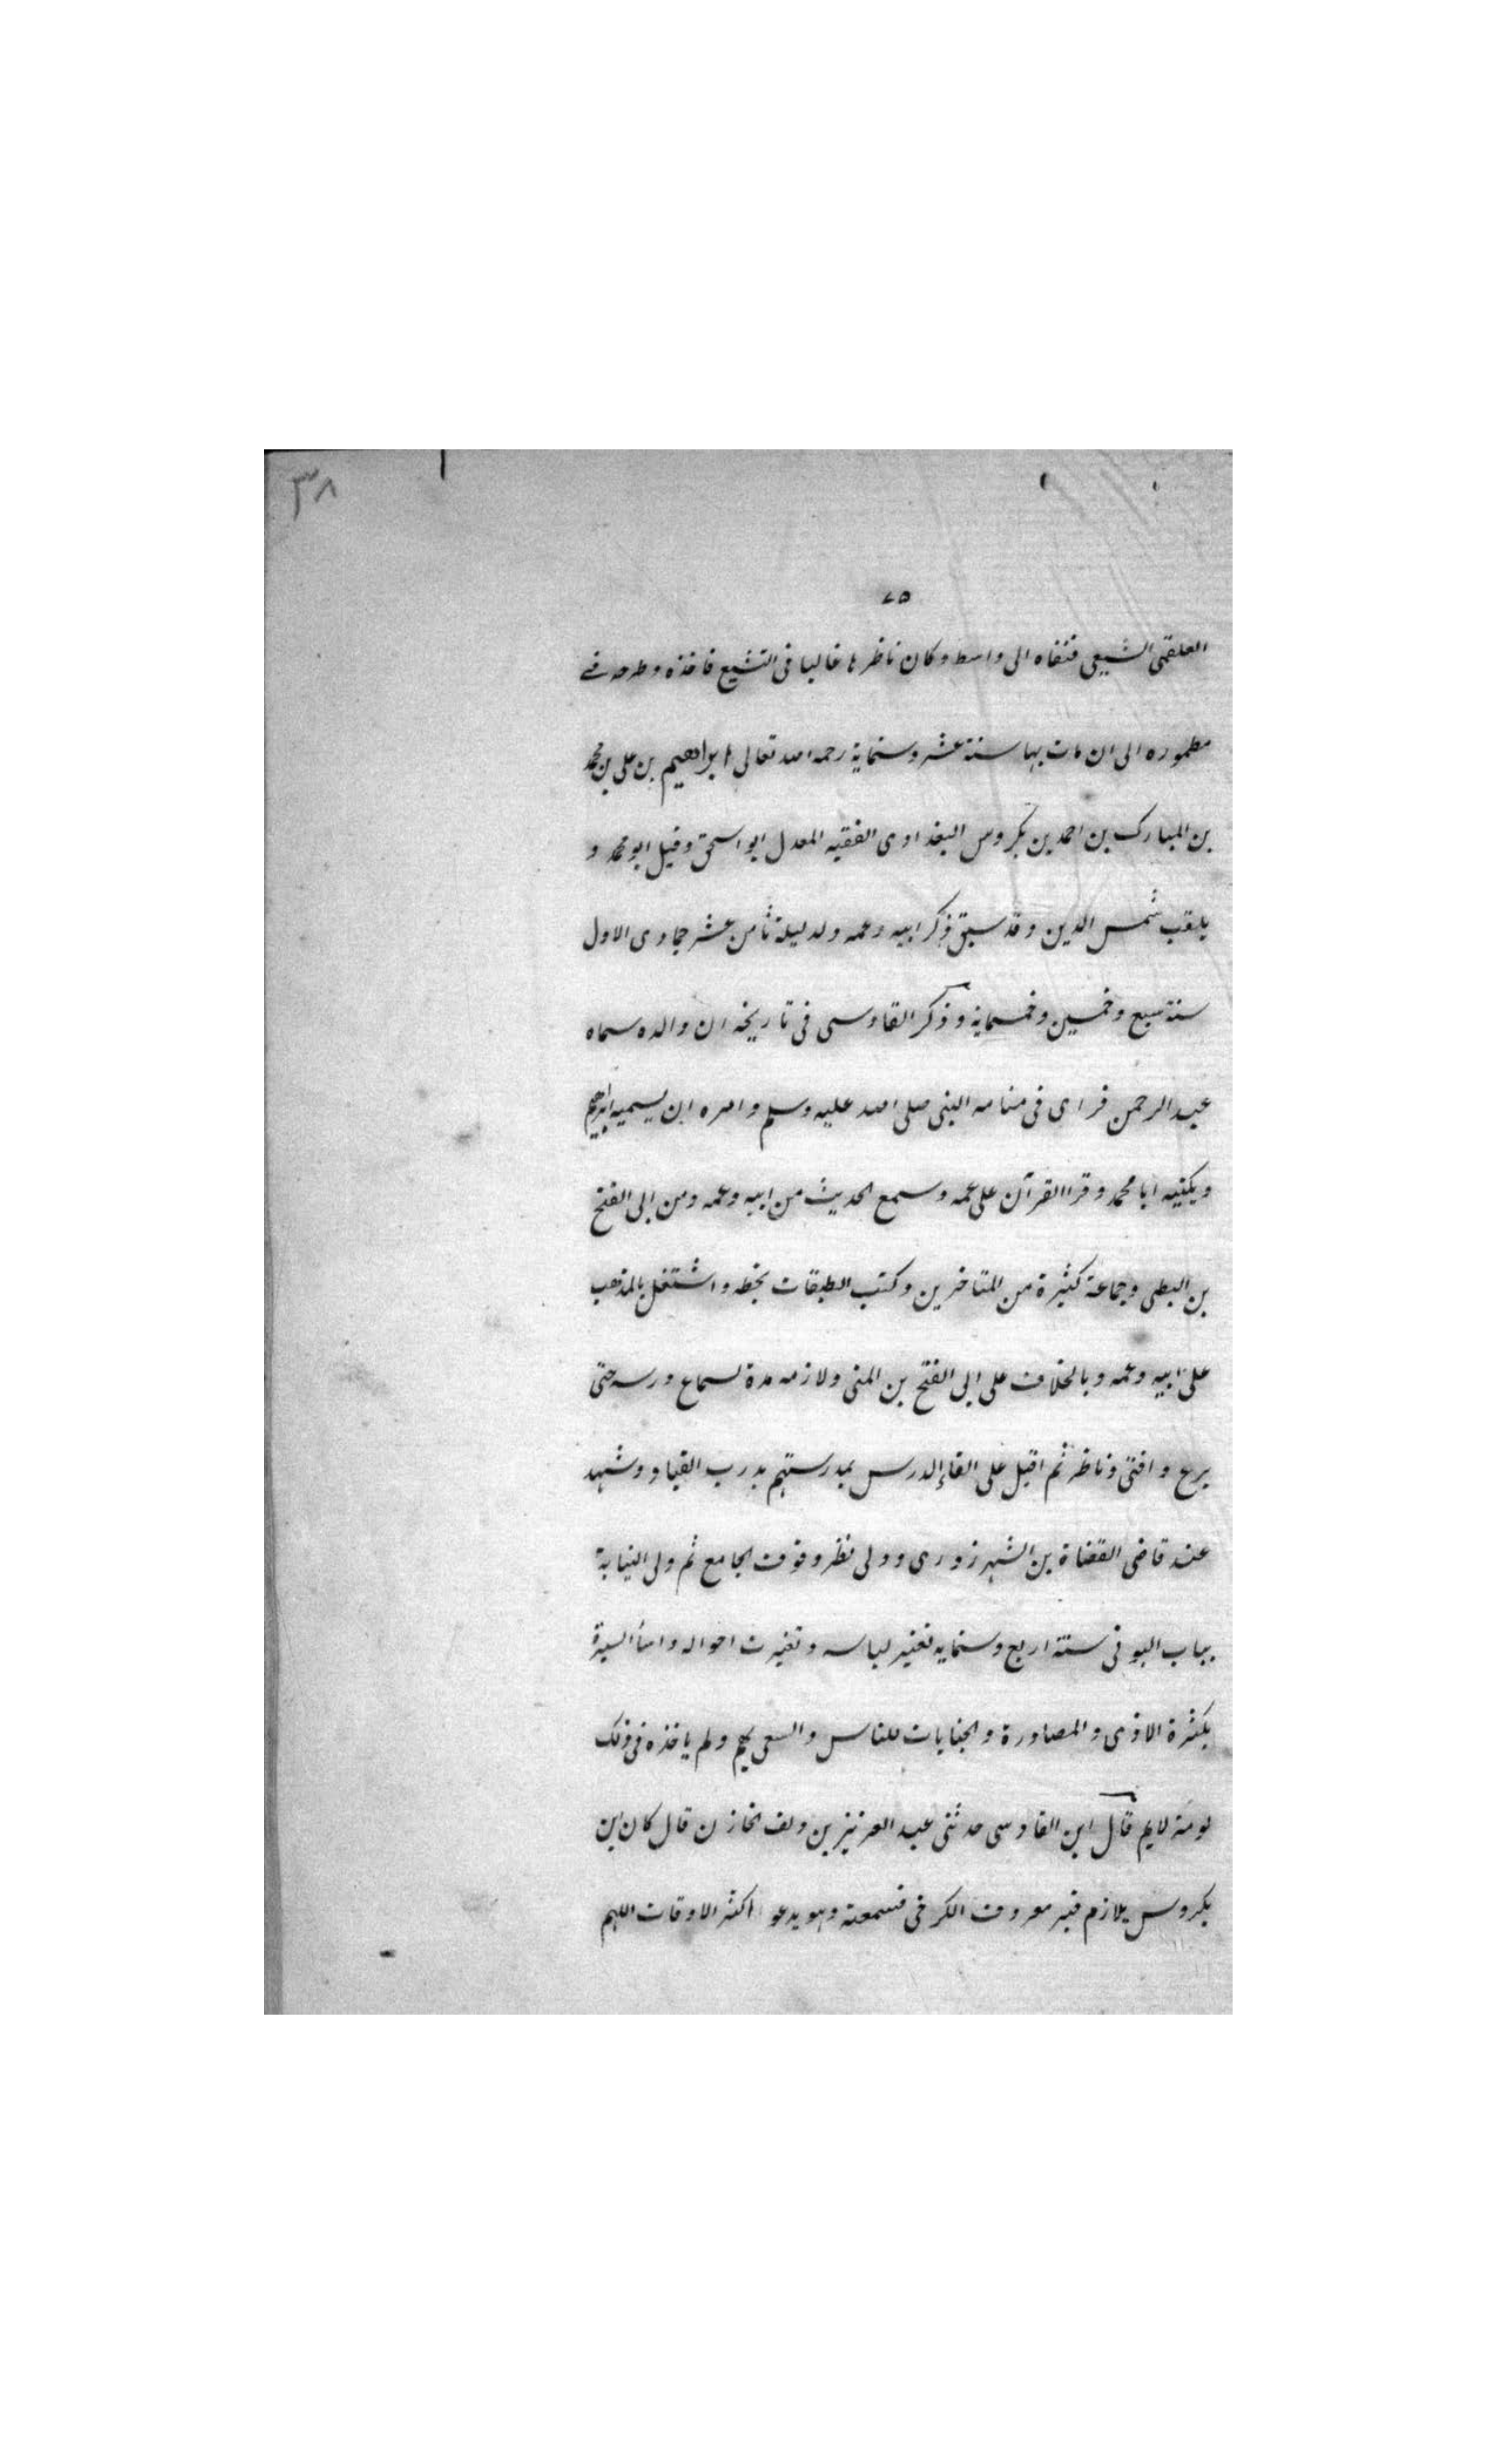 ٣٨
٧٥
العلقمى الشيعى فنفاه الى واسط وكان ناظرها غاليا فى التشيع فاخذه وطرحه فى
مطموره الى ان مات بها سنة عشر وستماية رحمه الله تعالى ابراهيم بن على بن محمد
بن المبارك بن احمد بن بكروس البغدادى الفقيه المعدل ابو اسحق وقيل ابو محمد و
يلقب شمس الدين وقد سبق ذكر ابيه وعمه ولد ليلة ثامن عشر جمادى الاول
سنة سبع وخمسين وخمسماية وذكر القادسى فى تاريخه ان والده سماه
عبد الرحمن فراى فى منامه النبى صلى الله عليه وسلم وامره ان يسميه ابراهيم
ويكنيه ابا محمد وقرا القرآن على عمه وسمع الحديث من ابيه وعمه ومن ابى الفتح
بن البطى وجماعة كثيرة من المتاخرين وكتب الطبقات بخطه واشتغل بالمذهب
على ابيه وعمه وبالخلاف على ابى الفتح بن المنى ولازمه مدة لسماع درسه حتى
برع وافتى وناظر ثم اقبل على القاء الدرس بمدرستهم بدرب القيار وشهد
عند قاضى القضاة بن الشهرزورى وولى نظر وقوف الجامع ثم ولى النيابة
بباب النوبى سنة اربع وستمايه فغير لباسه وتغيرت احواله واسأ السيرة
بكثرة الاذى والمصادرة والجنايات للناس والسعى بهم ولم ياخذه فى ذلك
لومة لايم قال ابن القادسى حدثنى عبد العزيز بن دلف الخازن قال كان ابن
بكروس يلازم قبر معروف الكرخى فسمعته وهو يدعو اكثر الاوقات اللهم